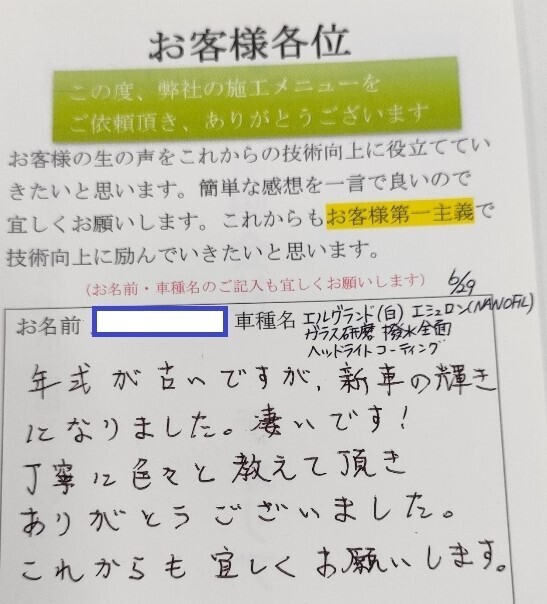 お客様各位
この度、弊社の施工メニューを
ご依頼頂き、ありがとうございます
お客様の生の声をこれからの技術向上に役立ててい
きたいと思います。簡単な感想を一言で良いので
宜しくお願いします。これからもお客様第一主義で
技術向上に励んでいきたいと思います。
(お名前・車種名のご記入も宜しくお願いします)
6/29
お名前 車種名 エルグランド(白) エシュロン(NANOFIL)
ガラス研磨 撥水全面
ヘッドライトコーティング
年式が古いですが、新車の輝き
になりました。凄いです!
丁寧に色々と教えて頂き
ありがとうございました。
これからも宜しくお願いします。